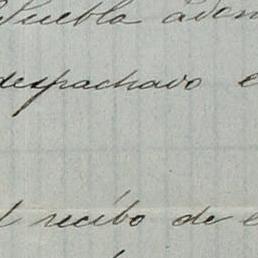 Puebla adon
despachavo e
l recibo de e